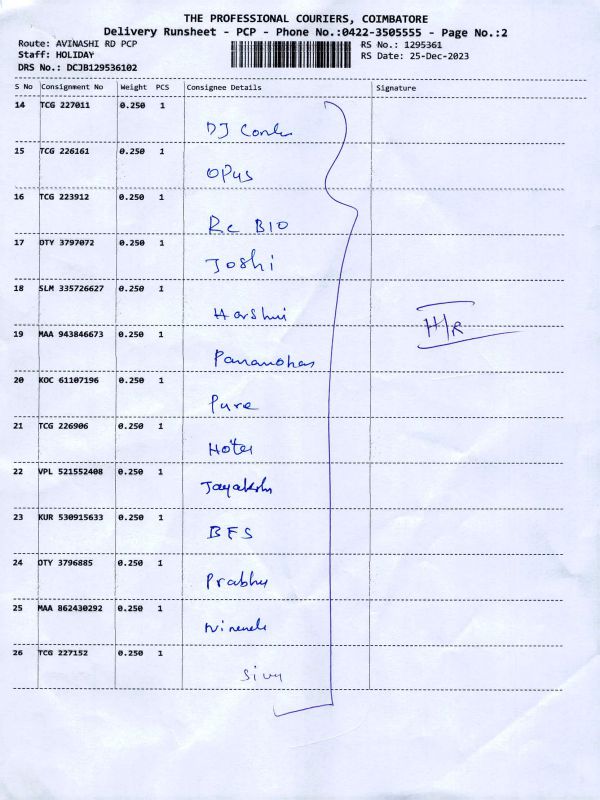 THE PROFESSIONAL COURIERS, COIMBATORE
Delivery Runsheet - PCP - Phone No.:0422-3505555 - Page No.:2
Route: AVINASHI RD PCP
Staff: HOLIDAY
DRS No.: DCJB129536102
RS No.: 1295361
RS Date: 25-Dec-2023
S No Consignment No Weight PCS Consignee Details Signature
14 TCG 227011 0.250 1
DJ
15 TCG 226161 0.250 1
OPus
16 TCG 223912 0.250 1
Rc BIO
17 OTY 3797072 0.250 1
Joshi
18 SLM 335726627 0.250 1
Harshni
H/R
19 MAA 943846673 0.250 1
20 KOC 61107196 0.250 1
Pure
21 TCG 226906 0.250 1
Hotel
22 VPL 521552408 0.250 1
23 KUR 530915633 0.250 1
BFS
24 OTY 3796885 0.250 1
Prabhu
25 MAA 862430292 0.250 1
26 TCG 227152 0.250 1